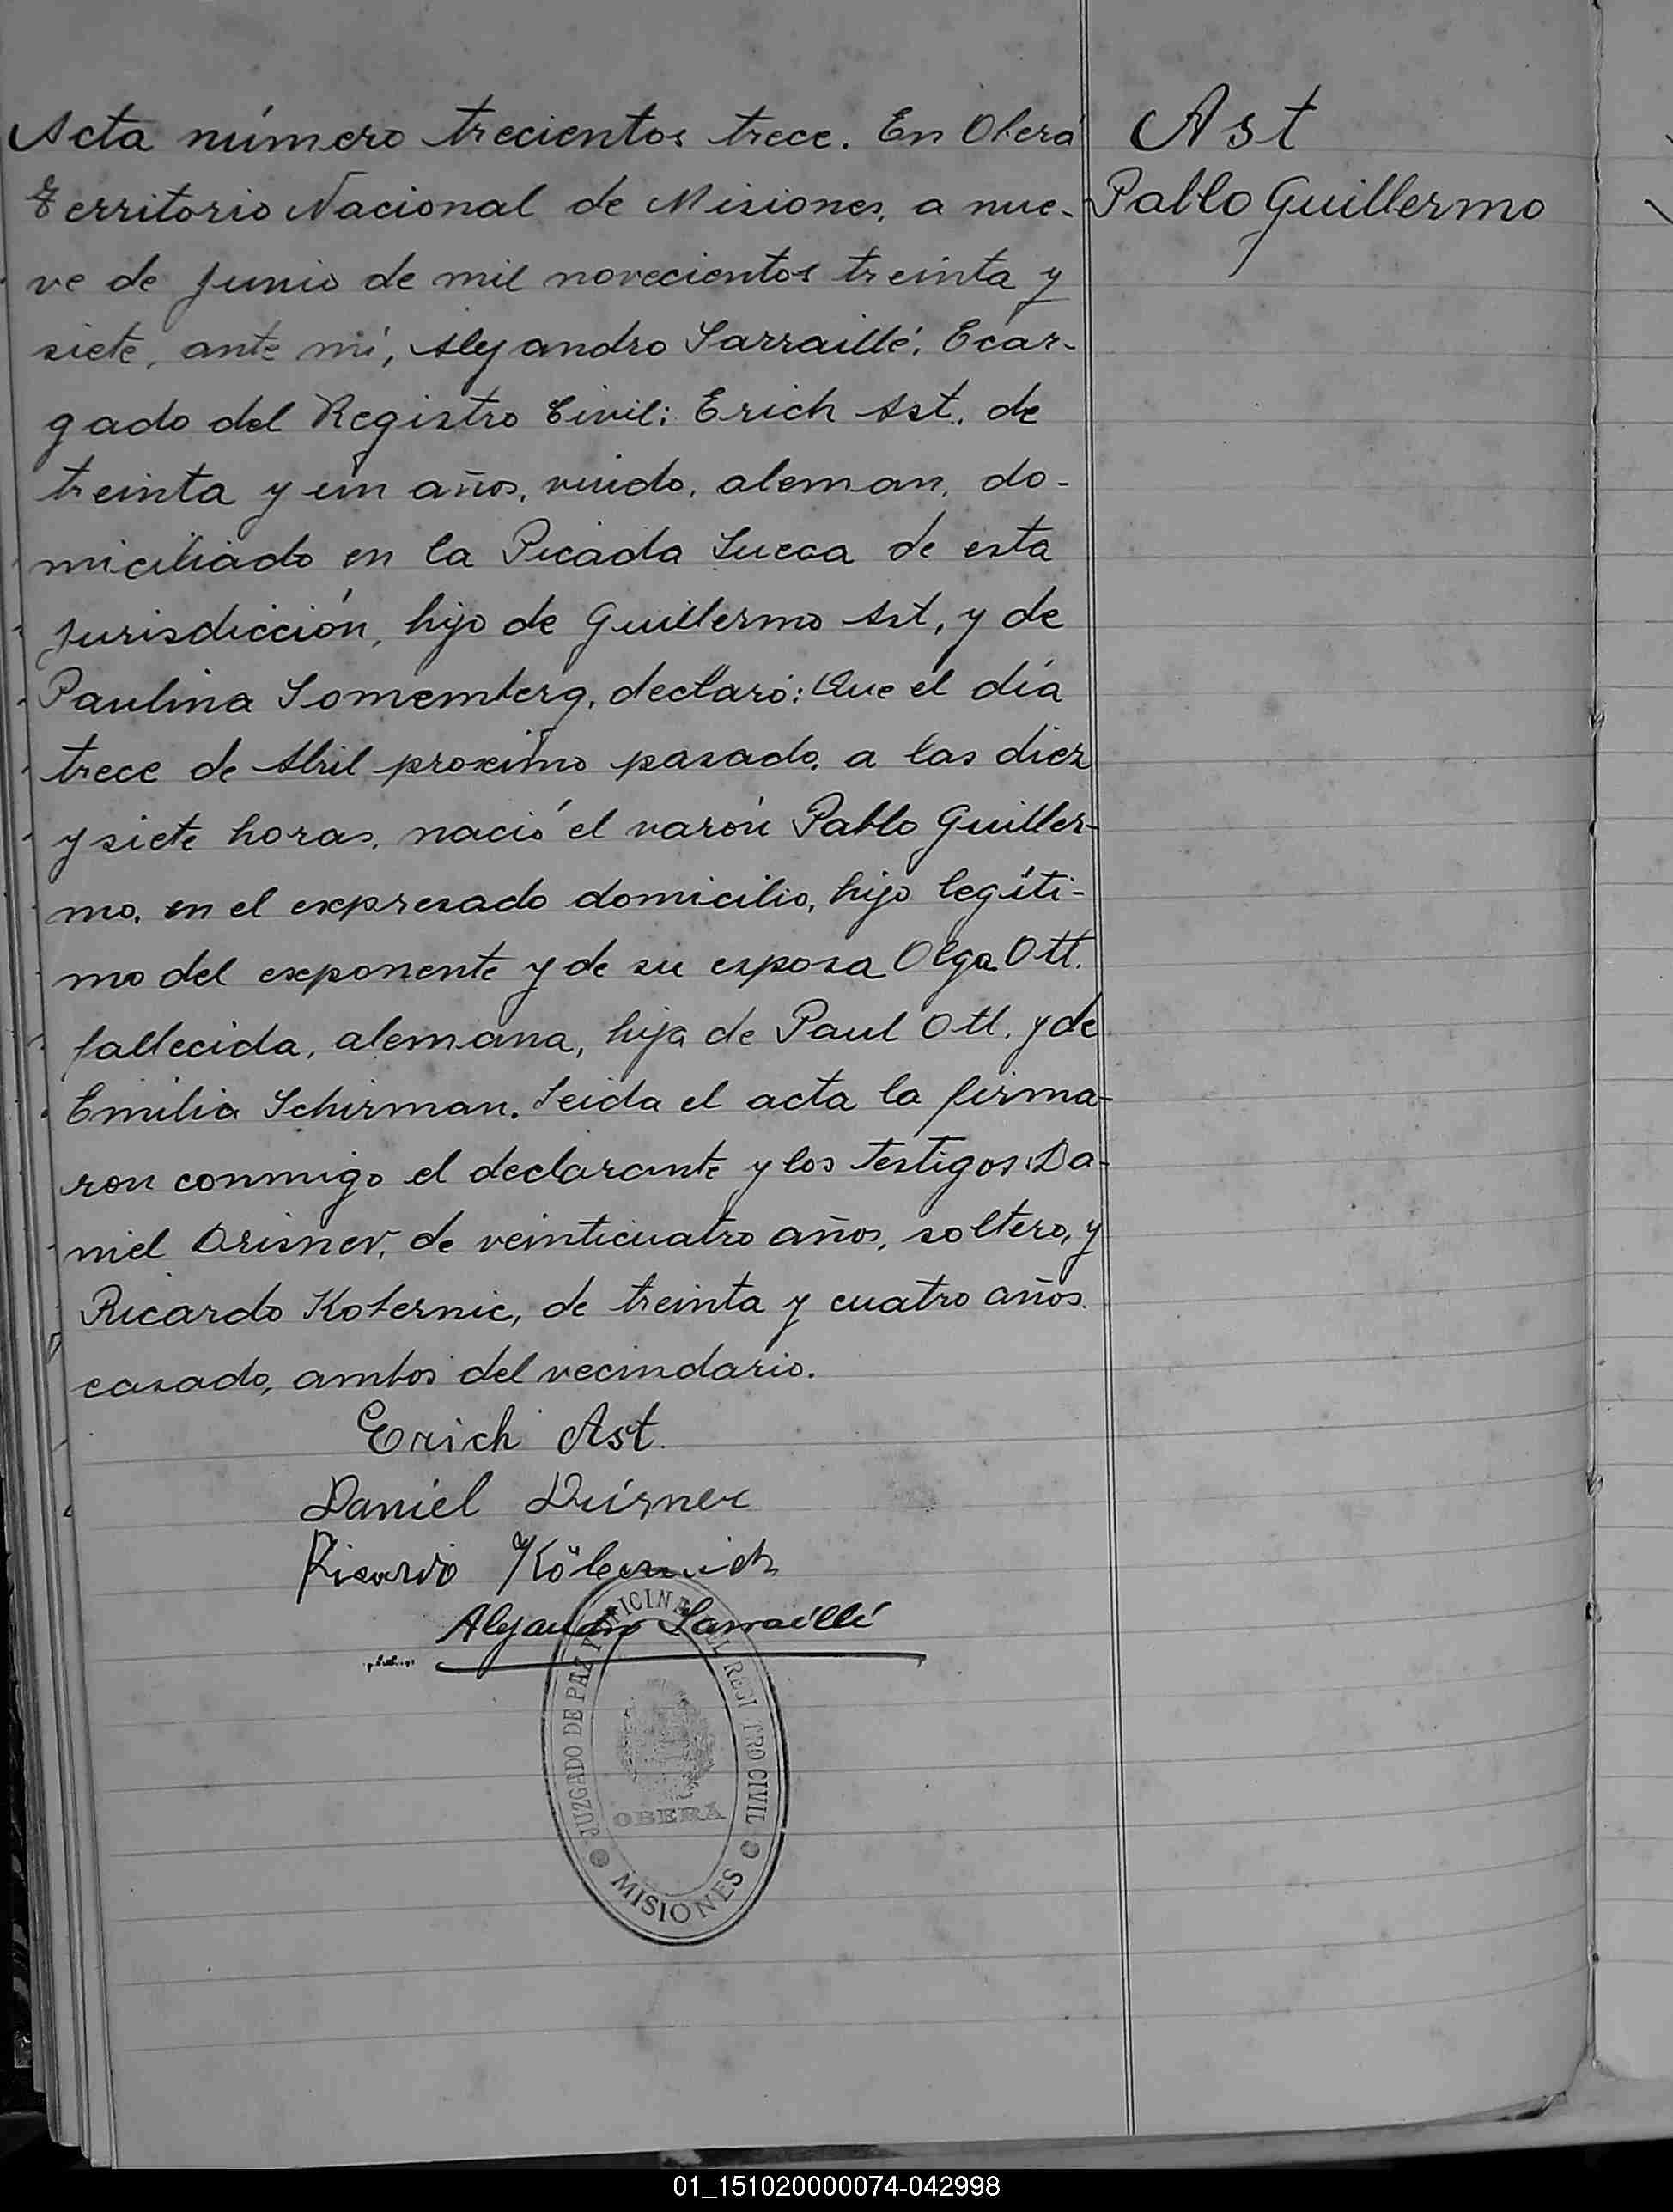 Acta número trecientos trece. En Oberá
Territorio Nacional de Misiones, a nue-
ve de Junio de mil novecientos treinta y
siete, ante mí, Alejandro Sarraillé, Ecar-
gado del Registro Civil: Erich Ast, de
treinta y un años, viudo, aleman, do-
miciliado en la Picada Sueca de esta
jurisdicción, hijo de Guillermo Ast, y de
Paulina Somemberg, declaró: Que el día
trece de Abril proximo pasado, a las diez
y siete horas, nació el varón Pablo Guiller-
mo, en el expresado domicilio, hijo legíti-
mo del exponente y de su esposa Olga Ott,
fallecida, alemana, hija de Paul Ott, y de
Emilia Schirman. Leida el acta la firma-
ron conmigo el declarante y los testigos: Da-
niel Drisner, de veinticuatro años, soltero, y
Ricardo Kobernic, de treinta y cuatro años,
casado, ambos del vecindario.
Ast
Pablo Guillermo
Erich Ast.
Daniel Drisner
Ricardo Köbernich
Alejandro Sarraillé
JUZGADO DE PAZ Y OFICINA DEL REGISTRO CIVIL
OBERÁ
MISIONES
01_151020000074-042998